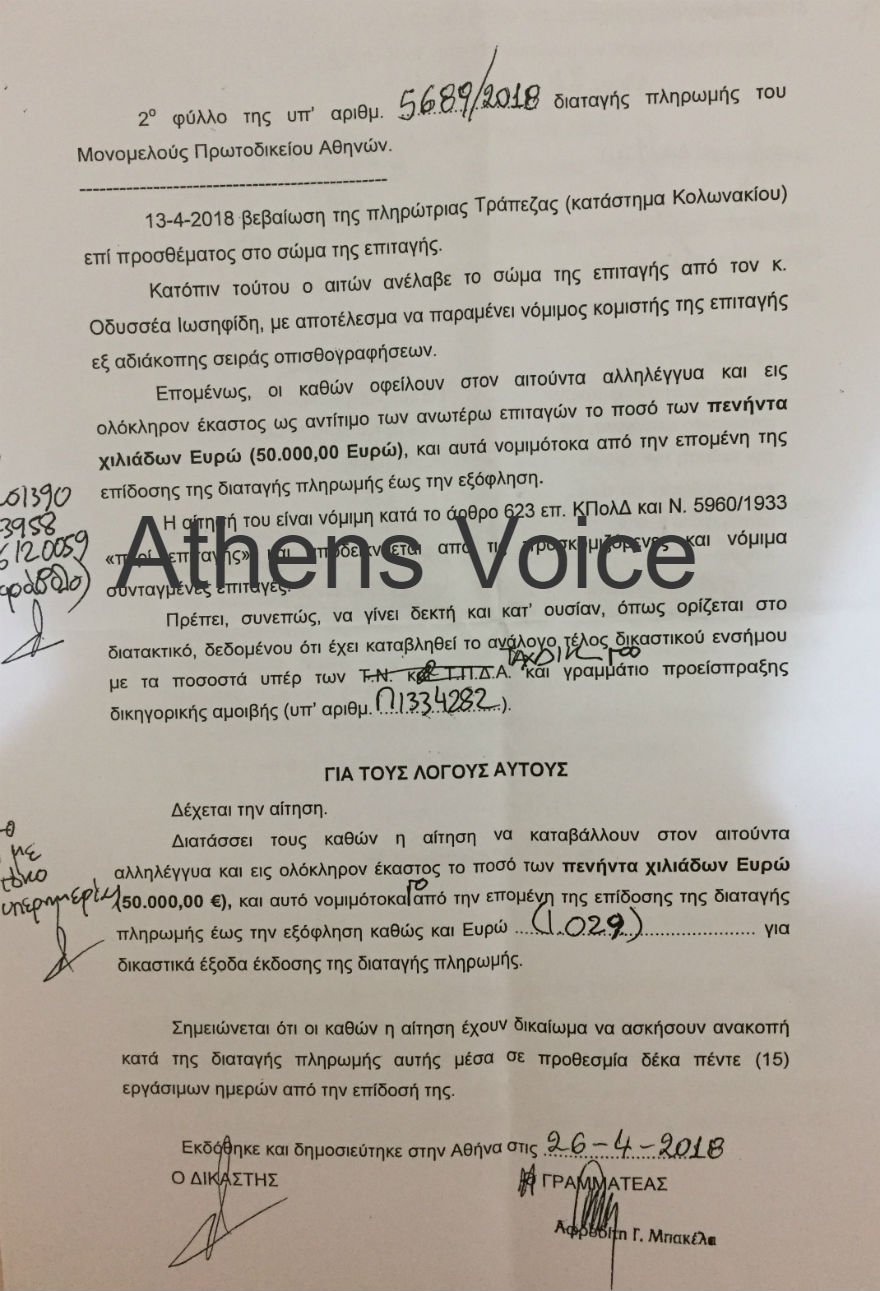 2ο φύλλο της υπ' αριθμ. 5689/2018 διαταγής πληρωμής του
Μονομελούς Πρωτοδικείου Αθηνών.
----------------------------------------------
13-4-2018 βεβαίωση της πληρώτριας Τράπεζας (κατάστημα Κολωνακίου)
επί προσθέματος στο σώμα της επιταγής.
Κατόπιν τούτου ο αιτών ανέλαβε το σώμα της επιταγής από τον κ.
Οδυσσέα Ιωσηφίδη, με αποτέλεσμα να παραμένει νόμιμος κομιστής της επιταγής
εξ αδιάκοπης σειράς οπισθογραφήσεων.
Επομένως, οι καθών οφείλουν στον αιτούντα αλληλέγγυα και εις
ολόκληρον έκαστος ως αντίτιμο των ανωτέρω επιταγών το ποσό των πενήντα
χιλιάδων Ευρώ (50.000,00 Ευρώ), και αυτά νομιμότοκα από την επομένη της
επίδοσης της διαταγής πληρωμής έως την εξόφληση.
01390
3958
6120059
Η αίτησή του είναι νόμιμη κατά το άρθρο 623 επ. ΚΠολΔ και Ν. 5960/1933
«περί επιταγής» και αποδεικνύεται από τις προσκομιζόμενες και νόμιμα
συνταγμένες επιταγές.
Athens Voice
Πρέπει, συνεπώς, να γίνει δεκτή και κατ' ουσίαν, όπως ορίζεται στο
διατακτικό, δεδομένου ότι έχει καταβληθεί το ανάλογο τέλος δικαστικού ενσήμου
με τα ποσοστά υπέρ των Τ.Ν. και Τ.Π.Δ.Α. και γραμμάτιο προείσπραξης
δικηγορικής αμοιβής (υπ' αριθμ. Π1334282).
ΓΙΑ ΤΟΥΣ ΛΟΓΟΥΣ ΑΥΤΟΥΣ
Δέχεται την αίτηση.
Διατάσσει τους καθών η αίτηση να καταβάλλουν στον αιτούντα
αλληλέγγυα και εις ολόκληρον έκαστος το ποσό των πενήντα χιλιάδων Ευρώ
(50.000,00 €), και αυτό νομιμότοκα από την επομένη της επίδοσης της διαταγής
πληρωμής έως την εξόφληση καθώς και Ευρώ ...(1.029)................ για
δικαστικά έξοδα έκδοσης της διαταγής πληρωμής.
με
τόκο
υπερημερίας
Σημειώνεται ότι οι καθών η αίτηση έχουν δικαίωμα να ασκήσουν ανακοπή
κατά της διαταγής πληρωμής αυτής μέσα σε προθεσμία δέκα πέντε (15)
εργάσιμων ημερών από την επίδοσή της.
Εκδόθηκε και δημοσιεύτηκε στην Αθήνα στις 26-4-2018
Ο ΔΙΚΑΣΤΗΣ Η ΓΡΑΜΜΑΤΕΑΣ
Αφροδίτη Γ. Μπακέλα